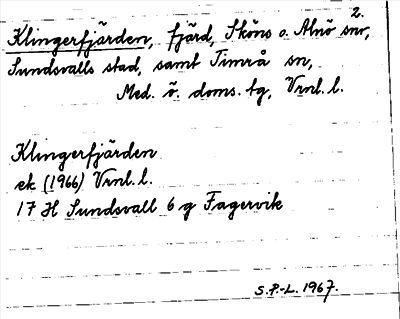 2.
Klingerfjärden, fjärd, Sköns o. Alnö snr,
Sundsvalls stad, samt Timrå sn,
Med. ö. doms. tg, Vrnl. l.
Klingerfjärden
ek (1966) Vrnl. l.
17 H Sundsvall 6 g Fagervik
S.P.-L. 1967.